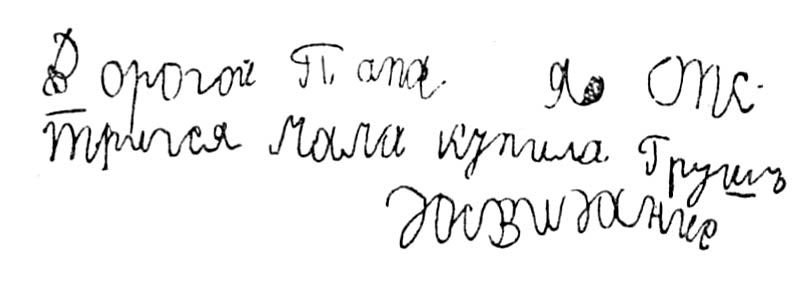 Дорогой Папа. Я Отс-
тригся мама купила Грушъ
Досвидание